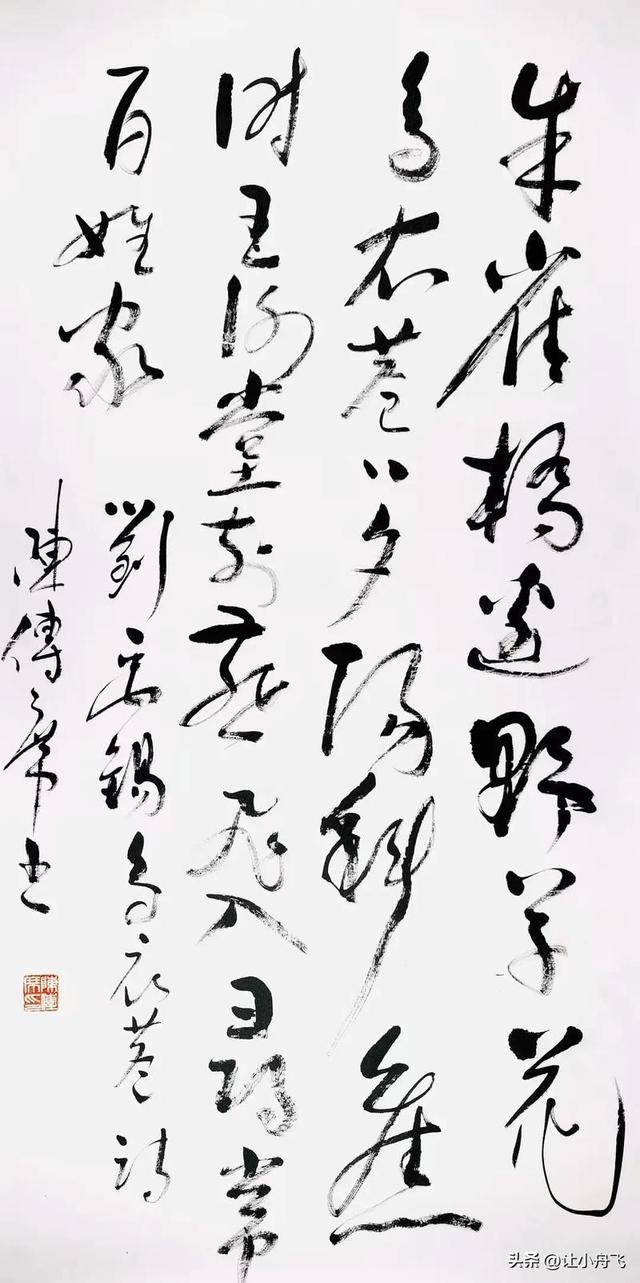 朱雀橋邊野草花
烏衣巷口夕陽斜舊
時王謝堂前燕飛入尋常
百姓家
劉禹錫烏衣巷詩
陳傳席書
陳傳席印
头条 @让小舟飞